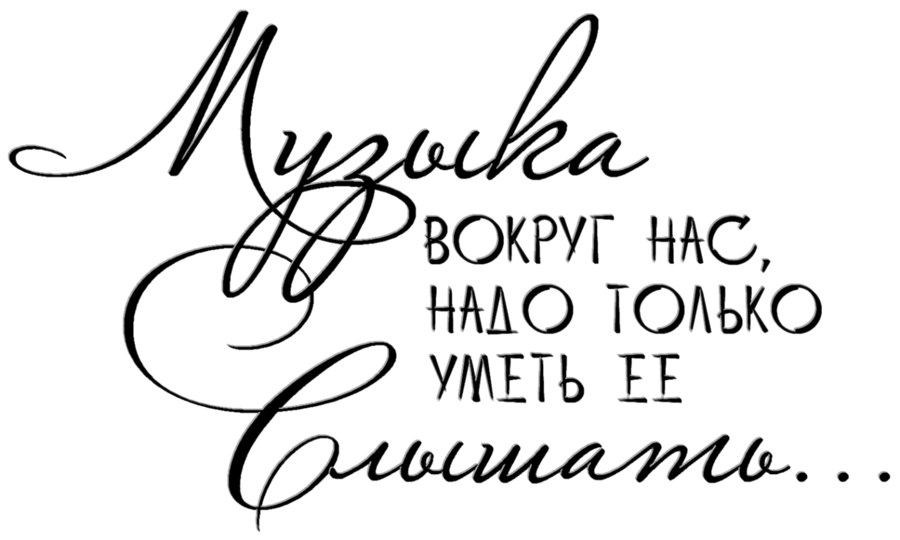 Музыка
ВОКРУГ НАС,
НАДО ТОЛЬКО
УМЕТЬ ЕЕ
Слышать...